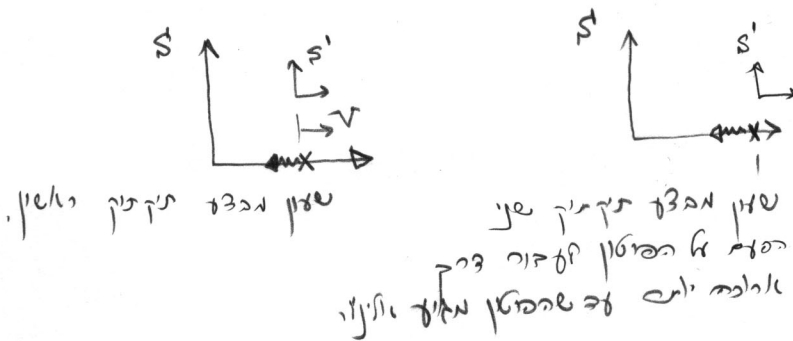 S
S'
V
שעון מבצע תיקתיק ראשון.
S
S'
שעון מבצע תיקתיק שני
הפעם על הפוטון לעבור דרך
ארוכה יותר עד שהפוטון מגיע אלינו.